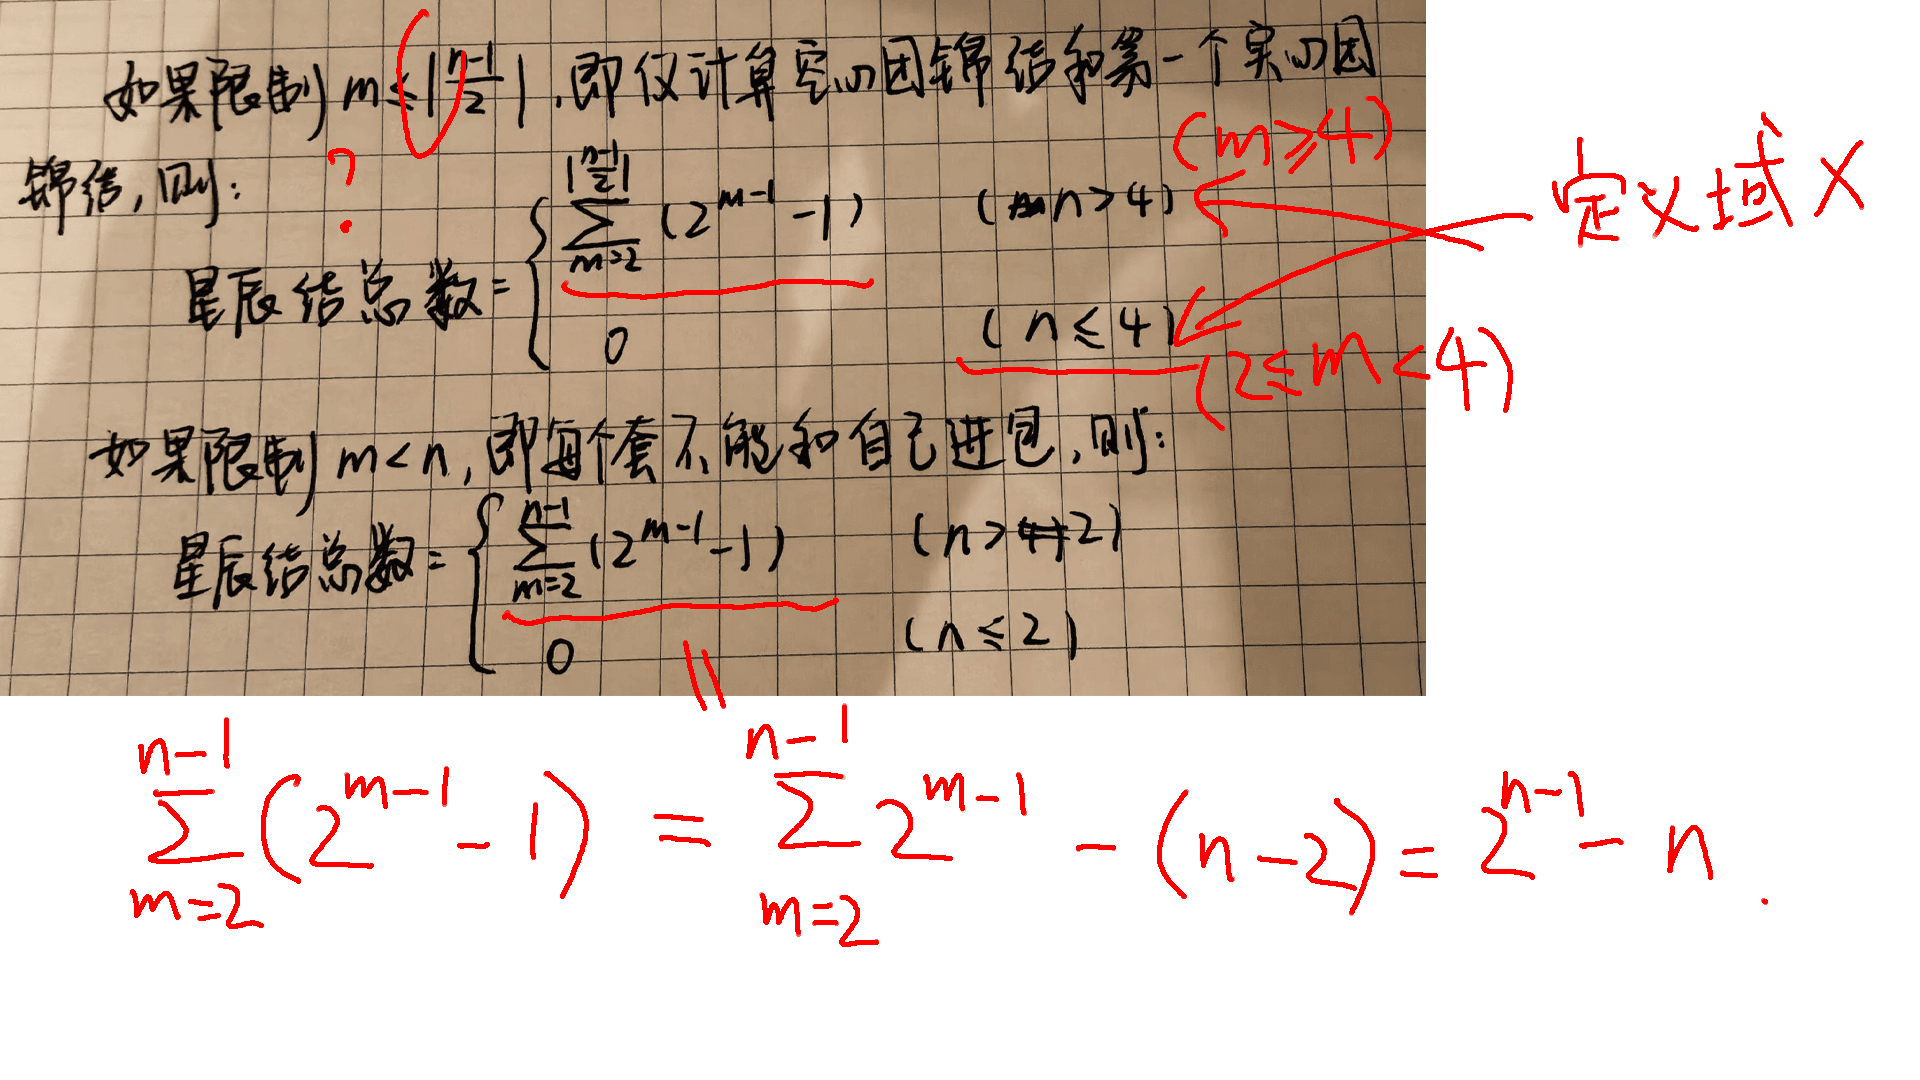 如果限制 m ≤ |n-1/2|，即仅计算空心因锦结和第一个实心因
锦结，则：
?
(m≥4)
定义域 X
星辰结总数 = { ∑_{m=2}^{|n-1/2|} (2^{m-1} - 1) (n > 4)
0 (n ≤ 4)
(2≤m<4)
如果限制 m < n，即每个套不能和自己进包，则：
星辰结总数 = { ∑_{m=2}^{n-1} (2^{m-1} - 1) (n > 2)
0 (n ≤ 2)
||
∑_{m=2}^{n-1} (2^{m-1} - 1) = ∑_{m=2}^{n-1} 2^{m-1} - (n-2) = 2^{n-1} - n .